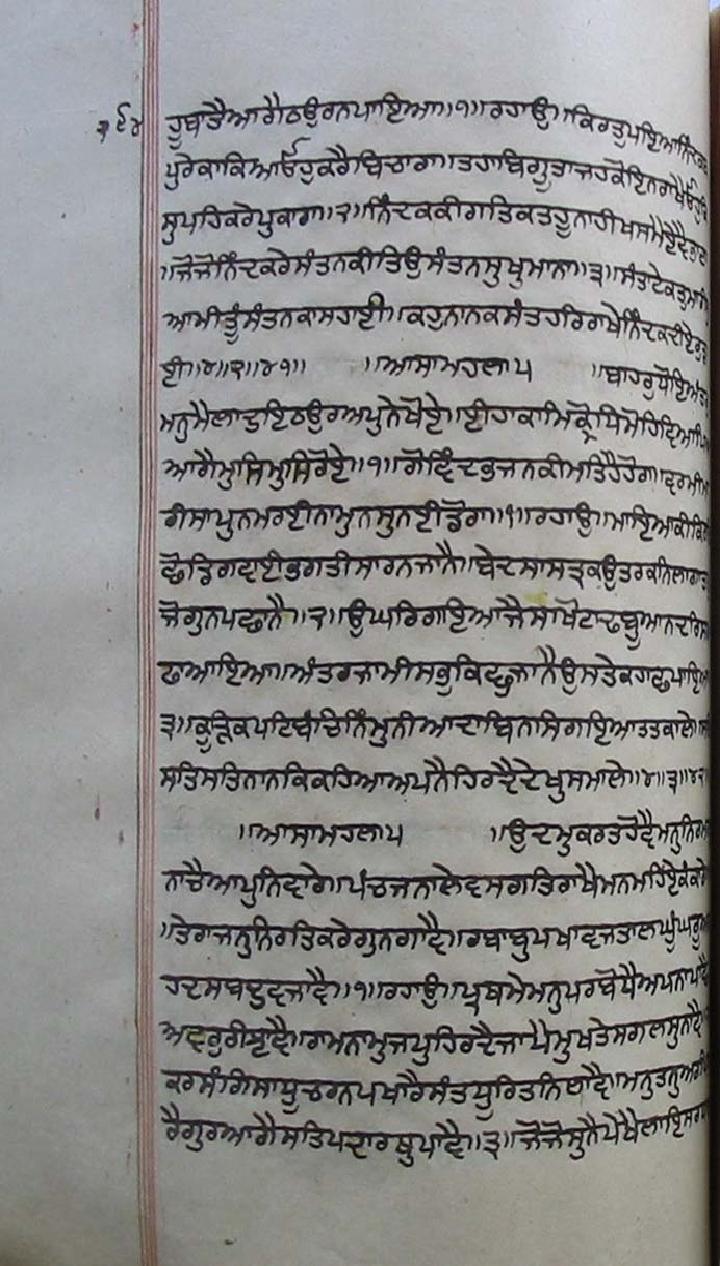 ੩੯੪
ਹੂਬਾਤੈਆਗੈਠਉਰਨਪਾਇਆ॥੧॥ਰਹਾਉ॥ਕਿਰਤੁਪਇਆਨਿੰਦਕ
ਪੁਰੇਕਾਕਿਆਓਹੁਕਰੈਬਿਚਾਰਾ॥ਤਹਾਬਿਗੂਤਾਜਹਕੋਇਨਰਾਖੈਓਹੁਕਿ
ਸੁਪਹਿਕਰੇਪੁਕਾਰਾ॥੨॥ਨਿੰਦਕਕੀਗਤਿਕਤਹੂਨਾਹੀਖਸਮੈਏਵੈਭਾਣਾ
॥ਜੋਜੋਨਿੰਦਕਰੇਸੰਤਨਕੀਤਿਉਸੰਤਨਸੁਖੁਮਾਨਾ॥੩॥ਸੰਤਾਟੇਕਤੁਮਾਰੀ
ਆਮੀਤੂੰਸੰਤਨਕਾਸਹਾਈ॥ਕਹੁਨਾਨਕਸੰਤਹਰਿਰਾਖੇਨਿੰਦਕਦੀਏਰੁੜਾ
ਈ॥੪॥੨॥੪੧॥ ॥ਆਸਾਮਹਲਾ੫ ॥ਬਾਹਰੁਧੋਇਅੰਤਰੁ
ਮਨੁਮੈਲਾਦੁਇਠਉਰਅਪੁਨੇਖੋਏ॥ਈਹਾਕਾਮਿਕ੍ਰੋਧਿਮੋਹਿਵਿਆਪਿਆ
ਆਗੈਮੁਸਿਮੁਸਿਰੋਏ॥੧॥ਗੋਵਿੰਦਭਜਨਕੀਮਤਿਹੈਹੋਰਾ॥ਵਰਮੀਮਾ
ਰੀਸਾਪੁਨਮਰਈਨਾਮੁਨਸੁਨਈਡੋਰਾ॥੧॥ਰਹਾਉ॥ਮਾਇਆਕੀਕਿਰਤਿ
ਛੋਡਿਗਵਾਈਭਗਤੀਸਾਰਨਜਾਨੈ॥ਬੇਦਸਾਸਤ੍ਰਕਉਤਰਕਨਿਲਾਗਾਤਤੁ
ਜੋਗੁਨਪਛਾਨੈ॥੨॥ਉਘਰਿਗਇਆਜੈਸਾਖੋਟਾਢਬੂਆਨਦਰਿਸਰਾ
ਫਾਆਇਆ॥ਅੰਤਰਜਾਮੀਸਭੁਕਿਛੁਜਾਨੈਉਸਤੇਕਹਾਛਪਾਇਆ
੩॥ਕੂੜਿਕਪਟਿਬੰਚਿਨਿੰਮੁਨੀਆਦਾਬਿਨਸਿਗਇਆਤਤਕਾਲੇ॥ਸਤਿ
ਸਤਿਸਤਿਨਾਨਕਿਕਹਿਆਅਪਨੈਹਿਰਦੈਦੇਖੁਸਮਾਲੇ॥੪॥੩॥੪੨
॥ਆਸਾਮਹਲਾ੫ ॥ਉਦਮੁਕਰਤਹੋਵੈਮਨੁਨਿਰਮਲੁ
ਨਾਚੈਆਪੁਨਿਵਾਰੇ॥ਪੰਚਜਨਾਲੇਵਸਗਤਿਰਾਖੈਮਨਮਹਿਏਕੰਕਾਰੇ
॥ਤੇਰਾਜਨੁਨਿਰਤਿਕਰੇਗੁਨਗਾਵੈ॥ਰਬਾਬੁਪਖਾਵਜਤਾਲਘੁੰਘਰੂਅਨ
ਹਦਸਬਦੁਵਜਾਵੈ॥੧॥ਰਹਾਉ॥ਪ੍ਰਥਮੇਮਨੁਪਰਬੋਧੈਅਪਨਾਪਾਛੈ
ਅਵਰੁਰੀਝਾਵੈ॥ਰਾਮਨਾਮੁਜਪੁਹਿਰਦੈਜਾਪੈਮੁਖਤੇਸਗਲਸੁਨਾਵੈ
ਕਰਸੰਗਿਸਾਧੂਚਰਨਪਖਾਰੈਸੰਤਧੂਰਿਤਨਿਲਾਵੈ॥ਮਨੁਤਨੁਅਰਪਿ
ਰੈਗੁਰਆਗੈਸਤਿਪਦਾਰਥੁਪਾਵੈ॥੩॥ਜੋਜੋਸੁਨੈਪੇਖੈਲਾਇਸਰਧਾ